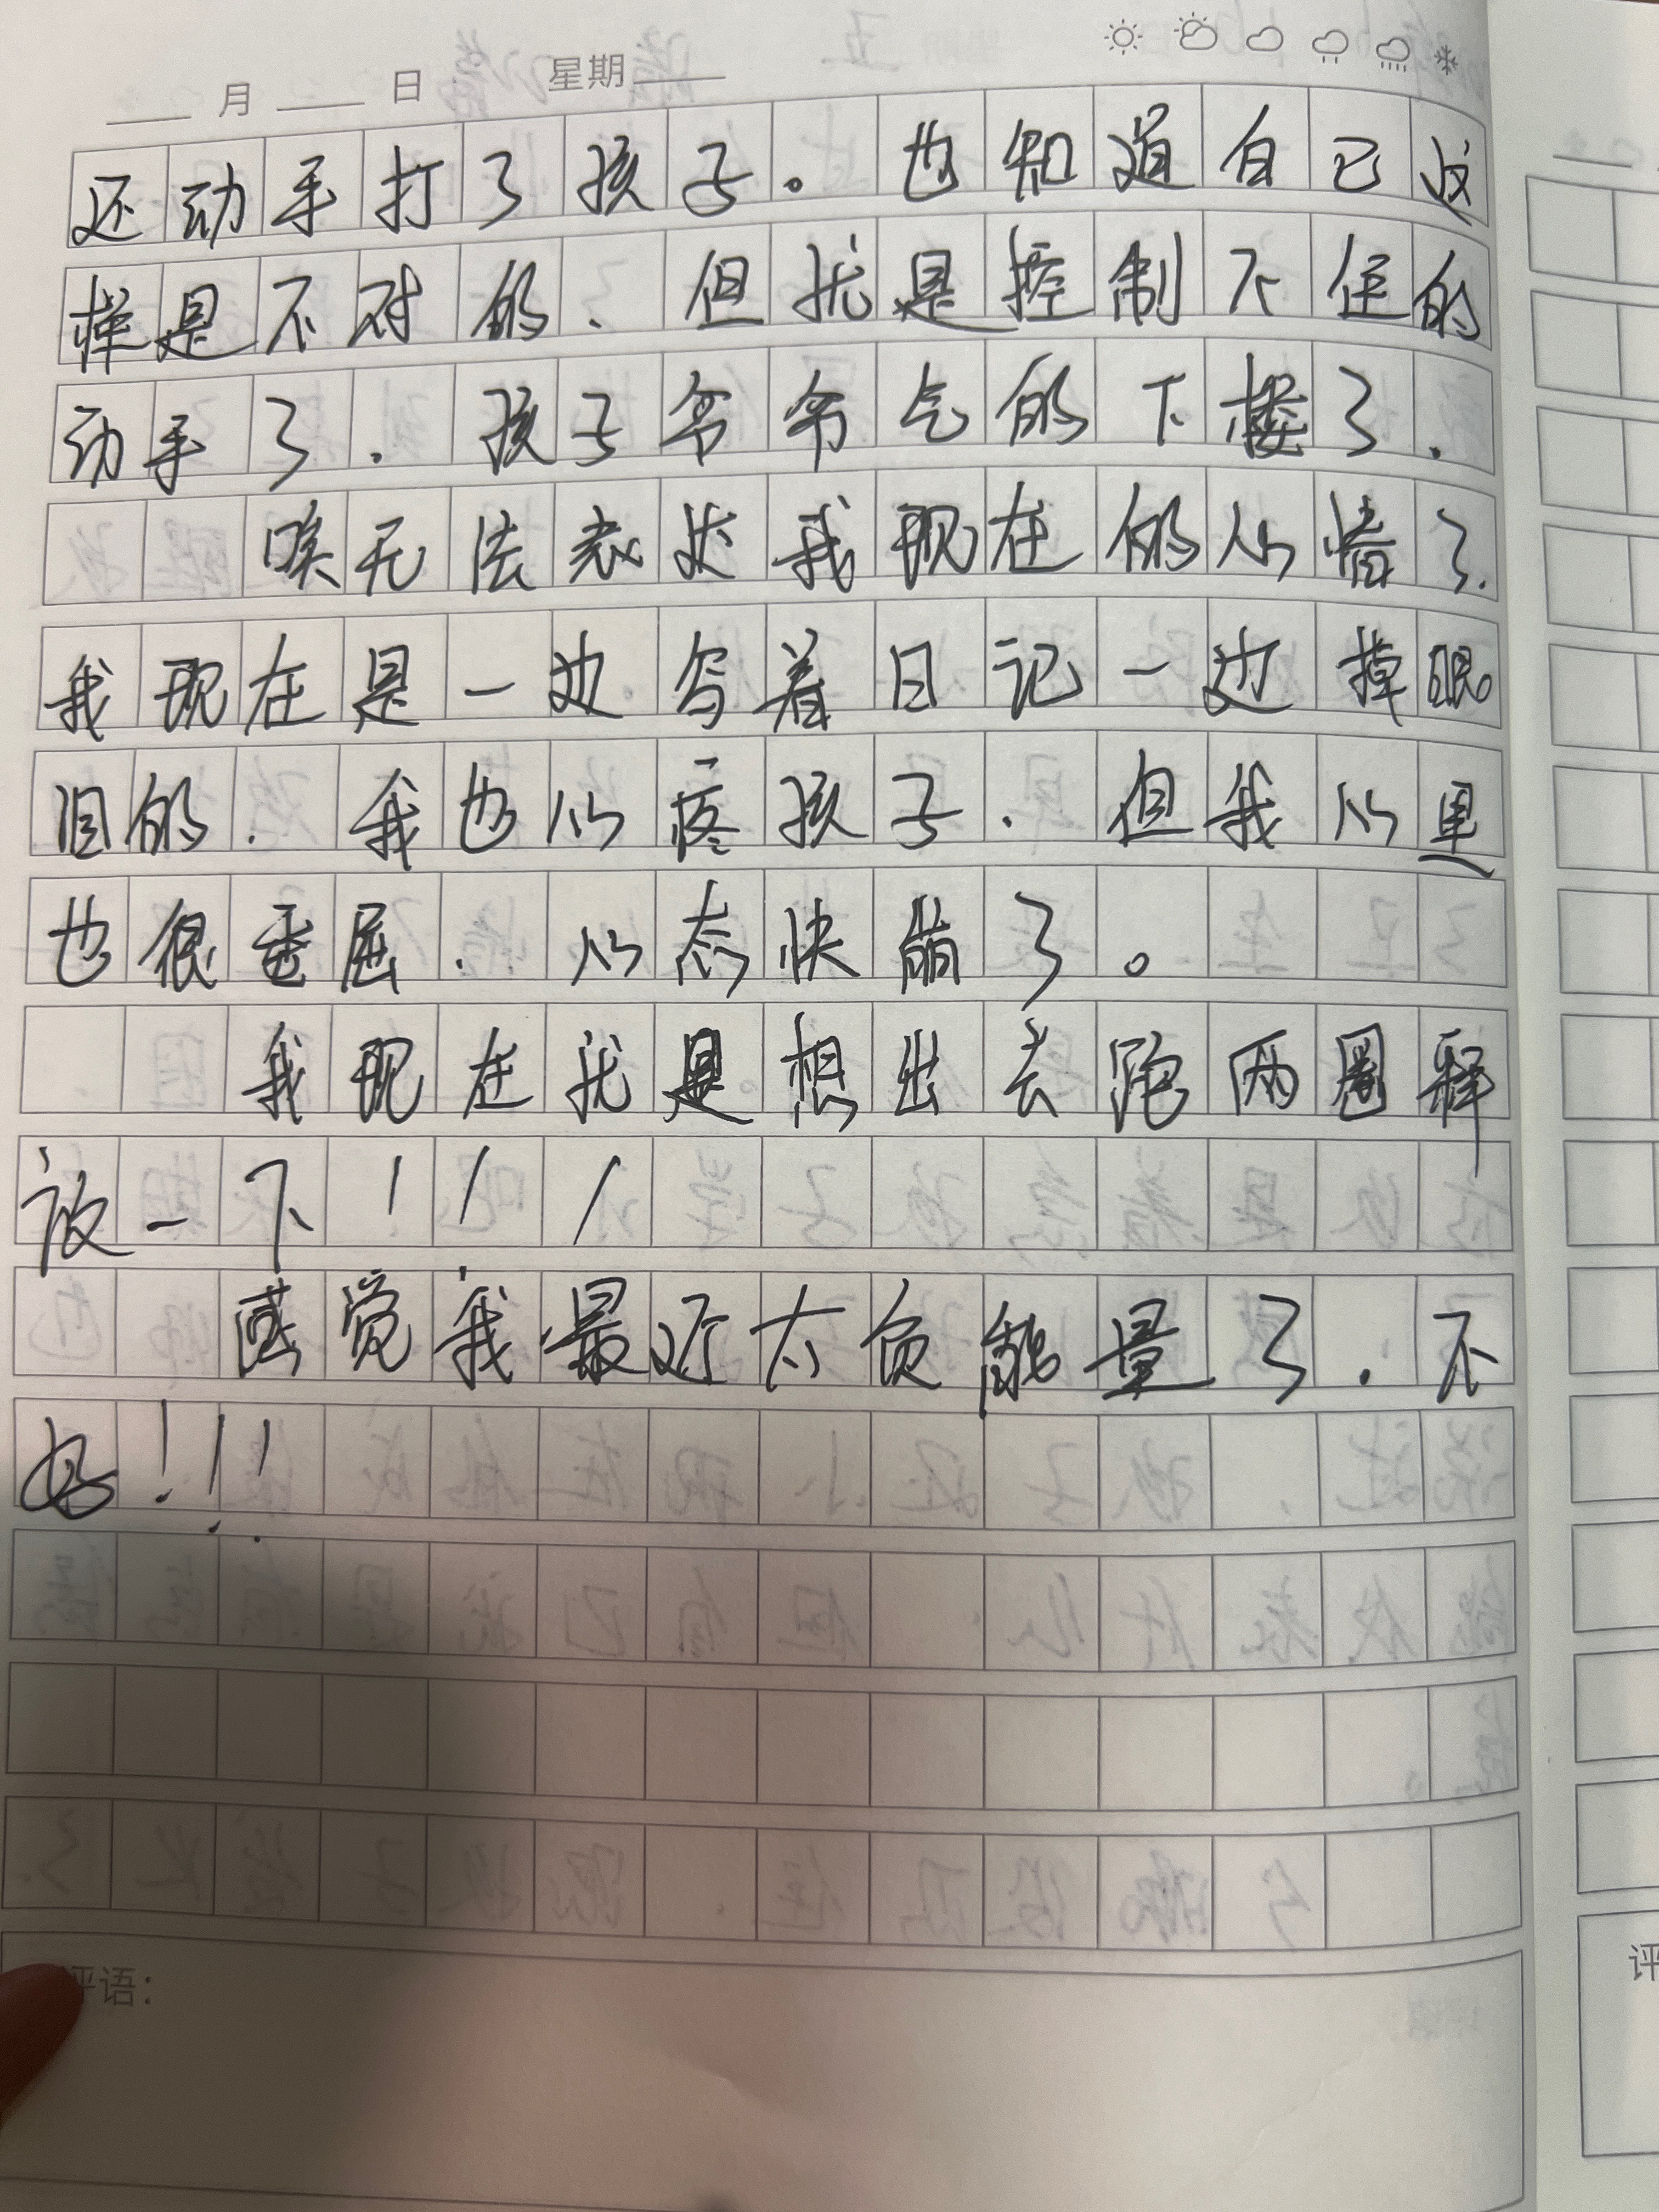 月 日 星期
还动手打了孩子。也知道自己这
样是不对的、但就是控制不住的
动手了. 孩子爷爷气的下楼了.
唉无法表达我现在的心情了.
我现在是一边写着日记一边掉眼
泪的. 我也心疼孩子. 但我心里
也很委屈. 心态快崩了。
我现在就是想出去跑两圈释
放一下!!!
感觉我最近太负能量了. 不
好!!!
评语:
评